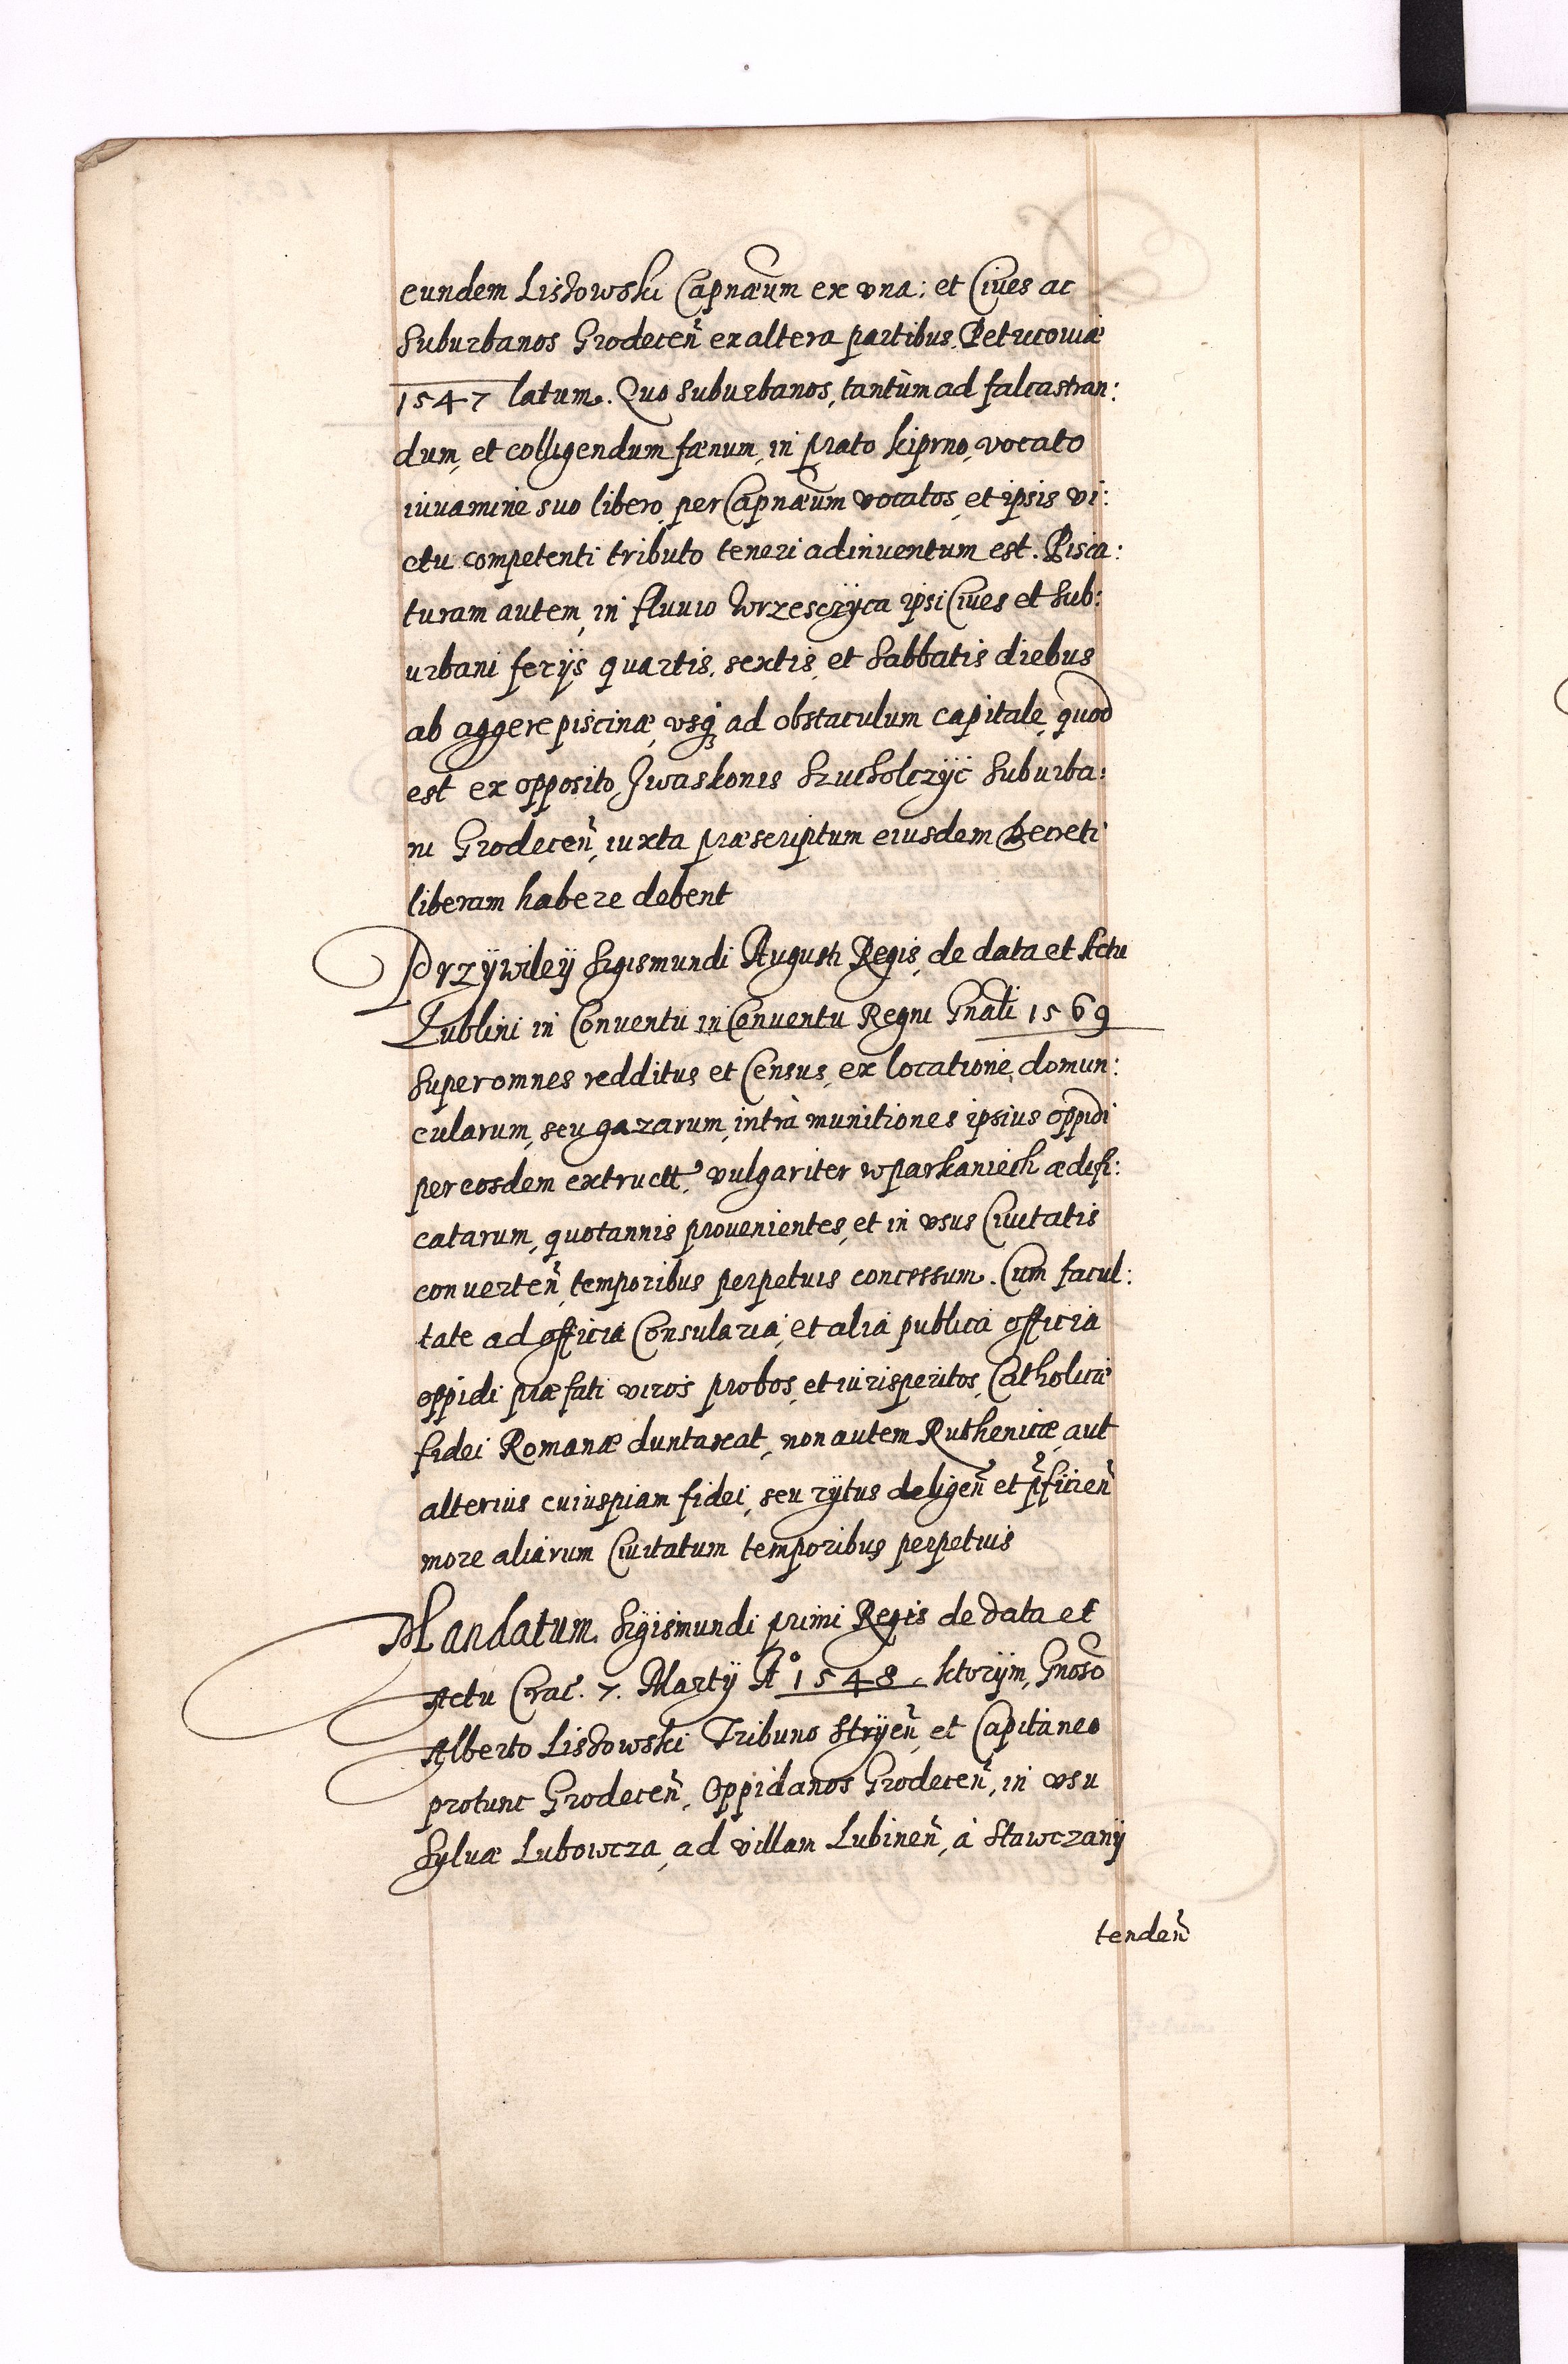 eundem Lissowski Capnæum ex vna: et Ciues ac
Suburbanos Grodeceñ ex altera partibus. Petricouiæ
1547 latum. Quo suburbanos, tantùm ad falcastran:
dum, et colligendum fænum, in prato kiprno, vocato
iuuamine suo libero, per Capnæum vocatos, et ipsis vi:
ctu competenti tributo teneri adinuentum est. Pisca:
turam autem, in fluuio Wrzesczÿca ipsi Ciues et Sub:
urbani ferÿs quartis, sextis, et Sabbatis diebus
ab aggere piscinæ, vsq3 ad obstaculum capitale, quod
est ex opposito Jwaskonis Szucholczÿc Suburba:
ni Grodeceñ, iuxta præscriptum eiusdem Decreti
liberam habere debent
Przÿwileÿ Sigismundi Augusti Regis, de data et Actu
Lublini in Conuentu in Conuentu Regni Gnali 1569
Super omnes redditus et Census, ex locatione, domun:
cularum, seu gazarum, intrà munitiones ipsius oppidi
per eosdem extructt. vulgariter w parkaniech ædifi:
catarum, quotannis prouenientes, et in vsus Ciuitatis
conuerteñ, temporibus perpetuis concessum. Cum facul:
tate ad officia Consularia, et alia publica officia
oppidi præfati viros probos, et iurisperitos, Catholicæ
fidei Romanæ duntaxat, non autem Ruthenicæ, aut
alterius cuiuspiam fidei, seu rÿtus deligeñ et p̃ficieñ
more aliarum Ciuitatum temporibus perpetuis
Mandatum Sigismundi primi Regis de data et
Actu Crac. 7. Martÿ A° 1548 ktorÿm, Gnoso
Alberto Lissowski Tribuno Strÿeñ, et Capitaneo
protunc Grodeceñ, Oppidanos Grodeceñ, in vsu
Syluæ Lubowcza, ad villam Lubineñ, à Stawczanÿ
tendeñ